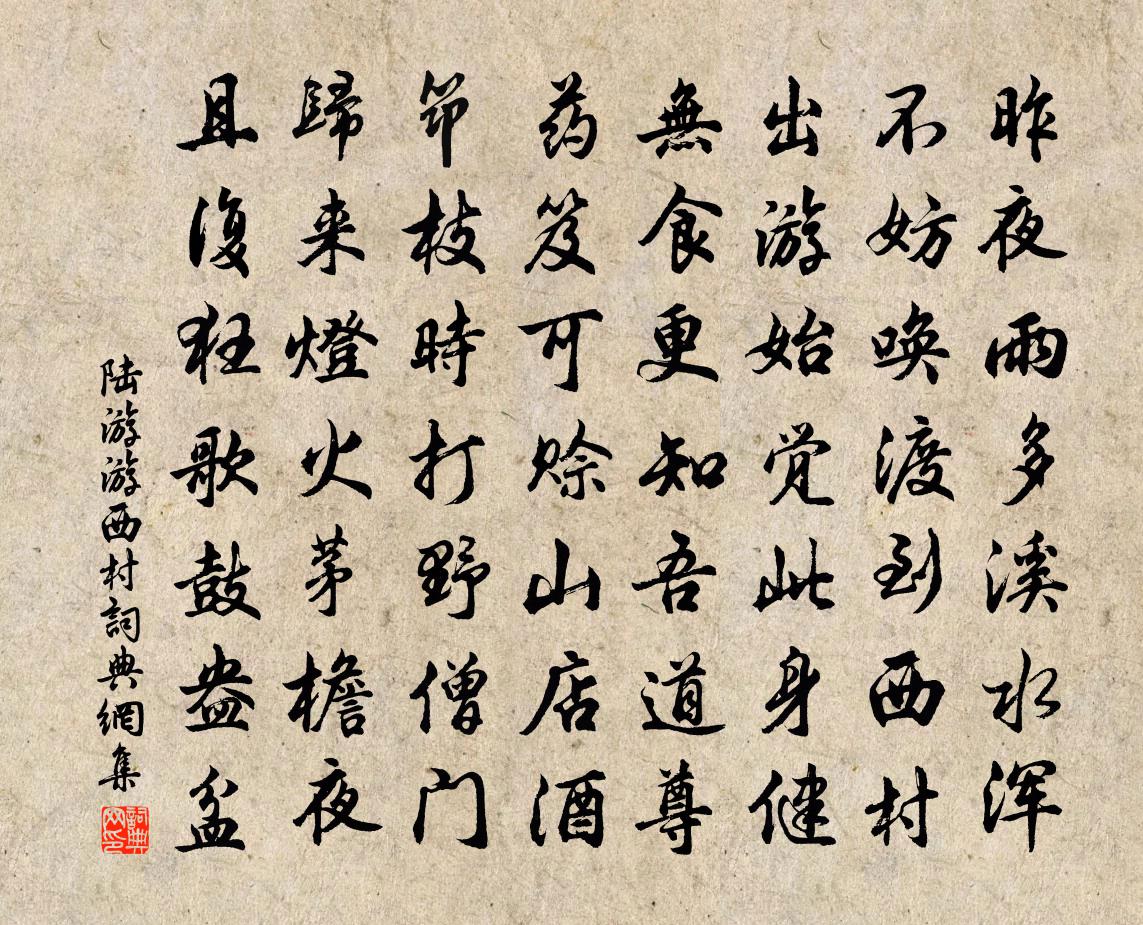 昨夜雨多溪水浑
不妨唤渡到西村
出游始觉此身健
無食更知吾道尊
药笈可赊山店酒
笻枝時打野僧门
歸来燈火茅檐夜
且復狂歌鼓盎盆
陆游游西村詞典網集
詞典网印